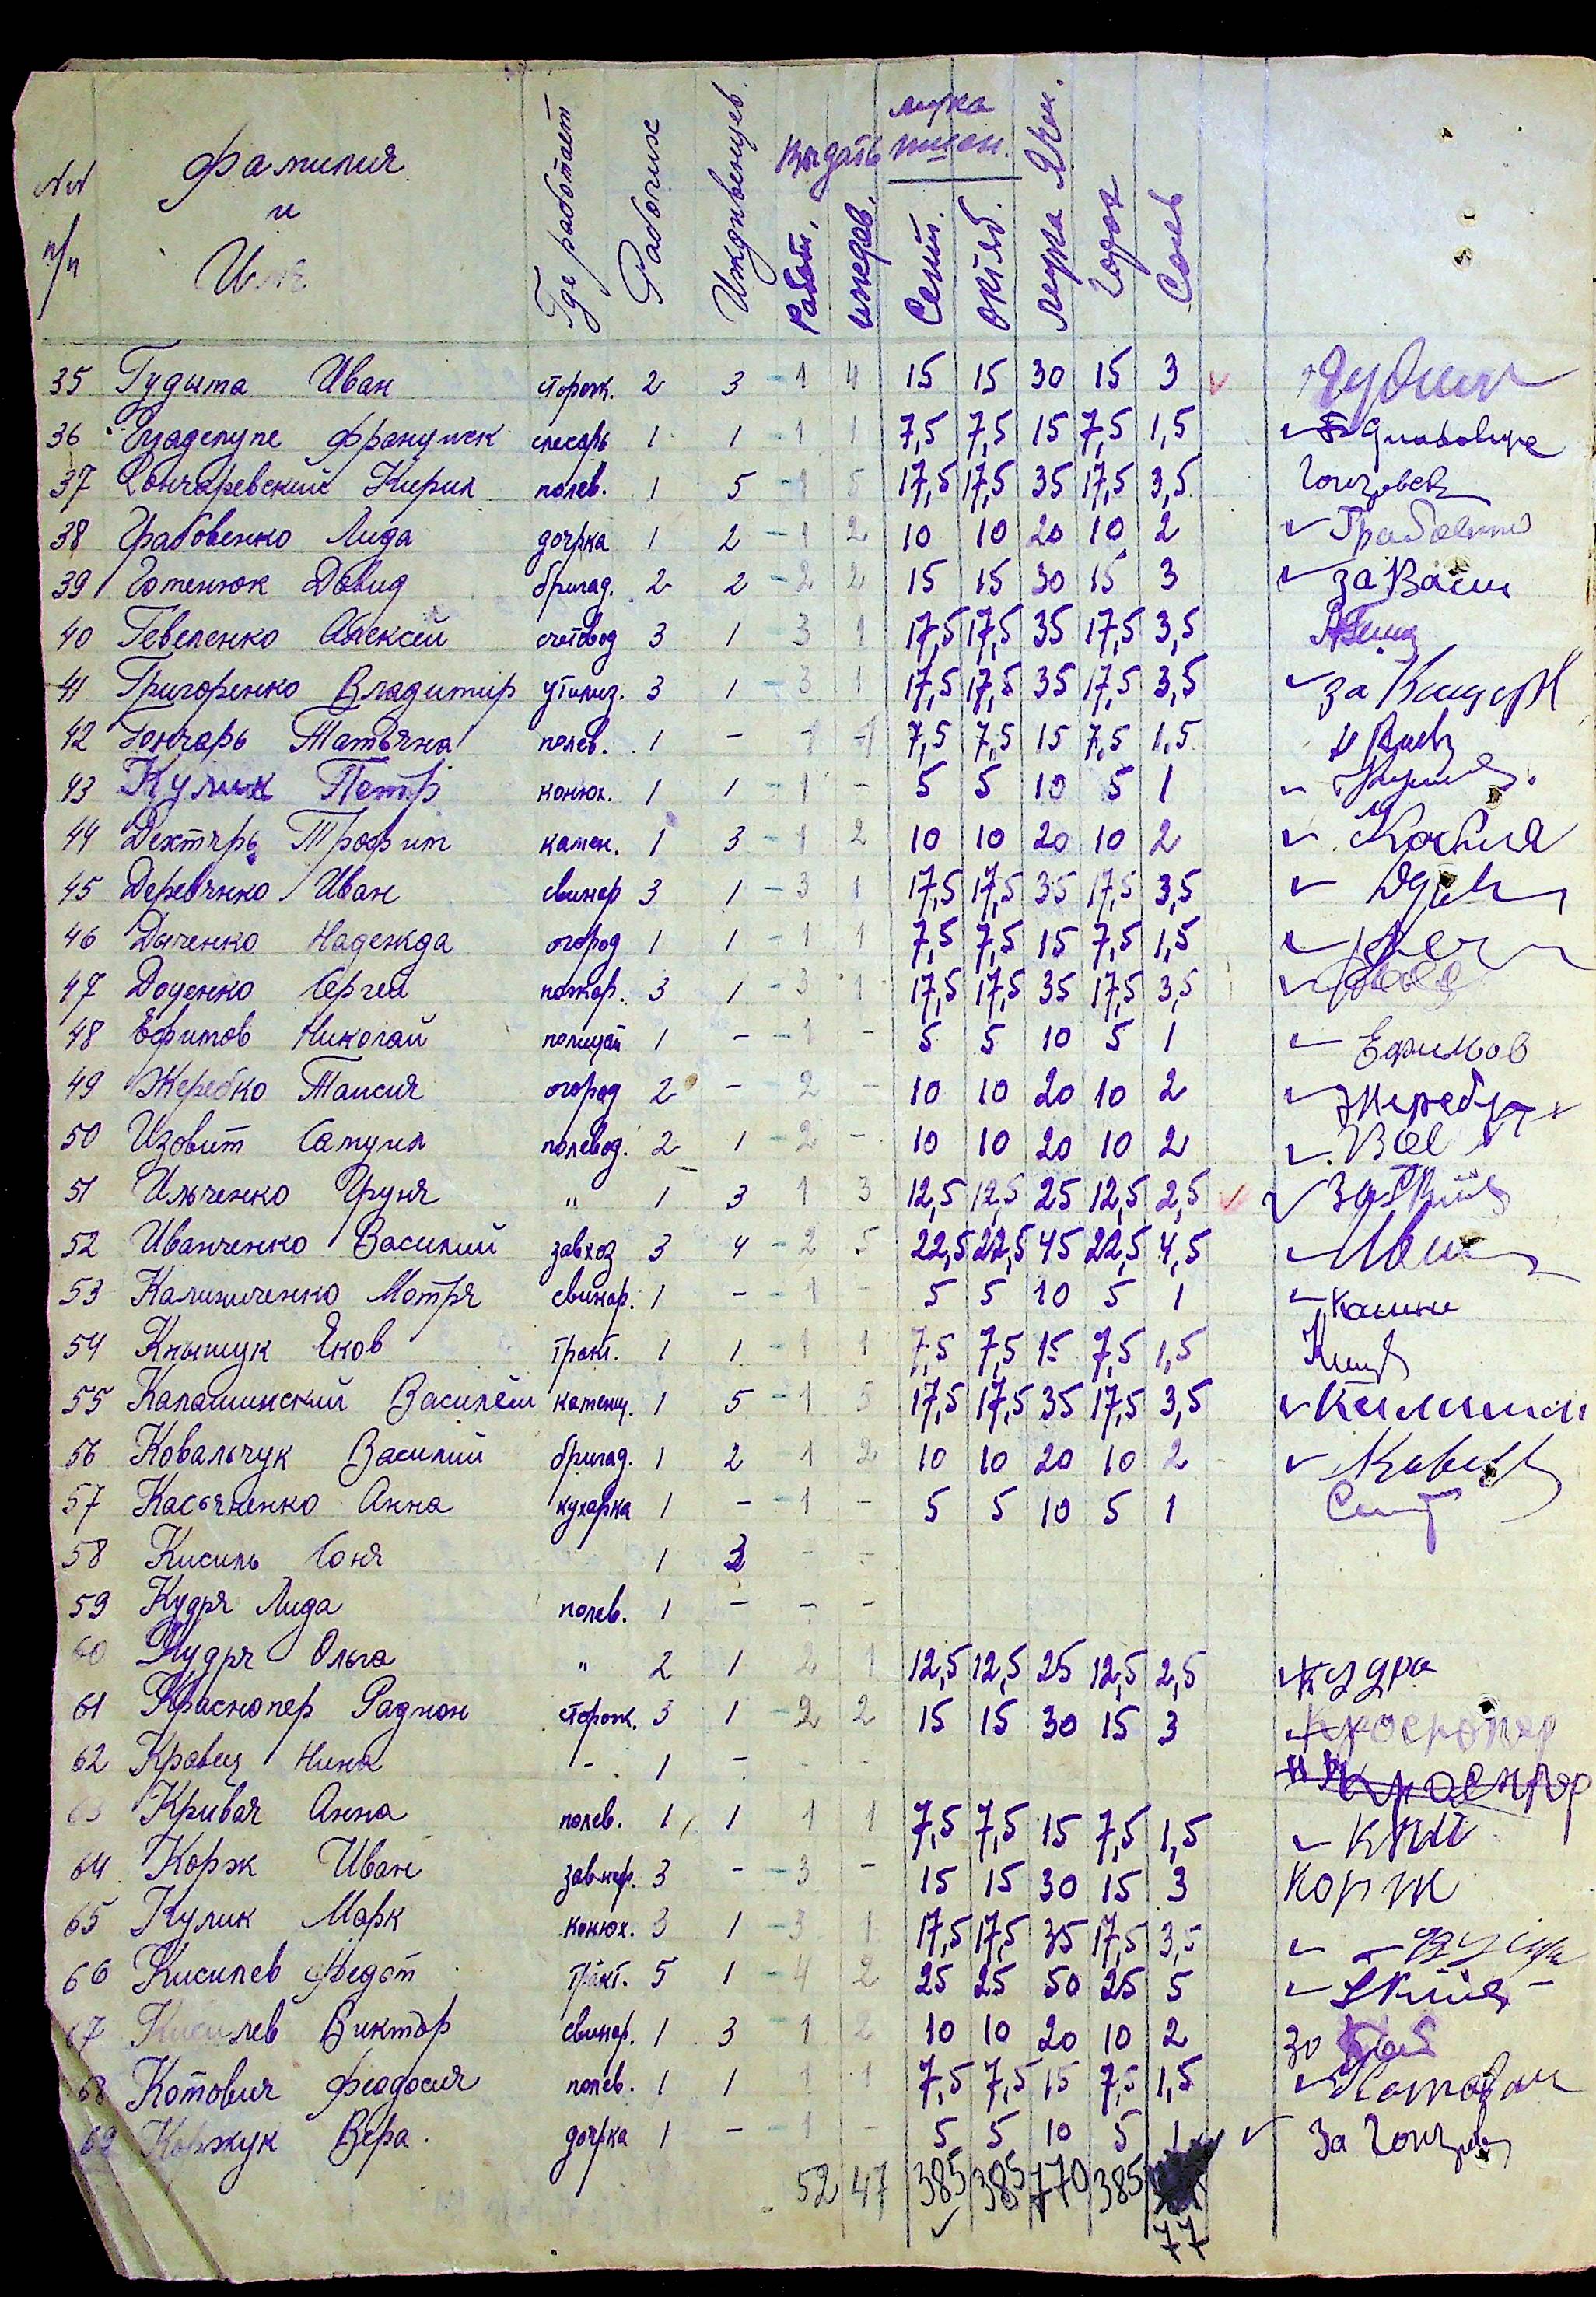 NN п/п Фамилия и Имя Где работает Рабочих Иждивенцев. Выдать работ. иждев. мука пшен. Сент. Октяб. мука Ячн. Горох Соль
35 Гудыма Иван сторож. 2 3 - 1 4 15 15 30 15 3
36 Франчишек слесарь 1 1 - 1 1 7,5 7,5 15 7,5 1,5
37 Гончаревский Кирил полев. 1 5 - 1 5 17,5 17,5 35 17,5 3,5
38 Грабовенко Лида доярка 1 2 - 1 2 10 10 20 10 2
39 Готенюк Давид бригад. 2 2 - 2 2 15 15 30 15 3 за Васи
40 Гевеленко Алексей счетовод 3 1 - 3 1 17,5 17,5 35 17,5 3,5
41 Григоренко Владимир утилиз. 3 1 - 3 1 17,5 17,5 35 17,5 3,5 за
42 Гончарь Татьяна полев. 1 - 1 1 7,5 7,5 15 7,5 1,5
43 Кулик Петр конюх. 1 1 - 1 - 5 5 10 5 1
44 Дехтярь Трофим камен. 1 3 - 1 2 10 10 20 10 2
45 Деревянко Иван свинар 3 1 - 3 1 17,5 17,5 35 17,5 3,5
46 Дяченко Надежда огород 1 1 - 1 1 7,5 7,5 15 7,5 1,5
47 Доценко Сергей пожар. 3 1 - 3 1 17,5 17,5 35 17,5 3,5
48 Ефимов Николай полицай 1 - - 1 - 5 5 10 5 1 Ефимов
49 Жеребко Таисия огород 2 - - 2 - 10 10 20 10 2
50 Изовит Самуил полевод. 2 1 - 2 - 10 10 20 10 2
51 Ильченко Груня " 1 3 1 3 12,5 12,5 25 12,5 2,5 за
52 Иванченко Василий завхоз 3 4 - 2 5 22,5 22,5 45 22,5 4,5
53 Калиниченко Мотря свинар. 1 - - 1 - 5 5 10 5 1 Калини
54 Кнышук Яков тракт. 1 1 - 1 1 7,5 7,5 15 7,5 1,5
55 Калашинский Василий каменщ. 1 5 - 1 5 17,5 17,5 35 17,5 3,5
56 Ковальчук Василий бригад. 1 2 1 2 10 10 20 10 2
57 Касьяненко Анна кухарка 1 - - 1 - 5 5 10 5 1
58 Кисиль Соня 1 3 - -
59 Кудря Лида полев. 1 - - -
60 Кудря Ольга " 2 1 2 1 12,5 12,5 25 12,5 2,5 Кудра
61 Краснопер Радион сторож. 3 1 - 2 2 15 15 30 15 3 Кроснопер
62 Кравец Нина - 1 - - -
63 Кривая Анна полев. 1 1 1 1 7,5 7,5 15 7,5 1,5
64 Корж Иван зав.кер. 3 - - 3 - 15 15 30 15 3 Корж
65 Кулик Марк конюх. 3 1 - 3 1 17,5 17,5 35 17,5 3,5
66 Кисилев Федот тракт. 5 1 - 4 2 25 25 50 25 5
67 Кисилев Виктор свинар. 1 3 - 1 2 10 10 20 10 2
68 Котович Феодосия полев. 1 1 1 1 7,5 7,5 15 7,5 1,5
69 Коржук Вера. доярка 1 - - 1 - 5 5 10 5 1 За
52 47 385 385 770 385
77